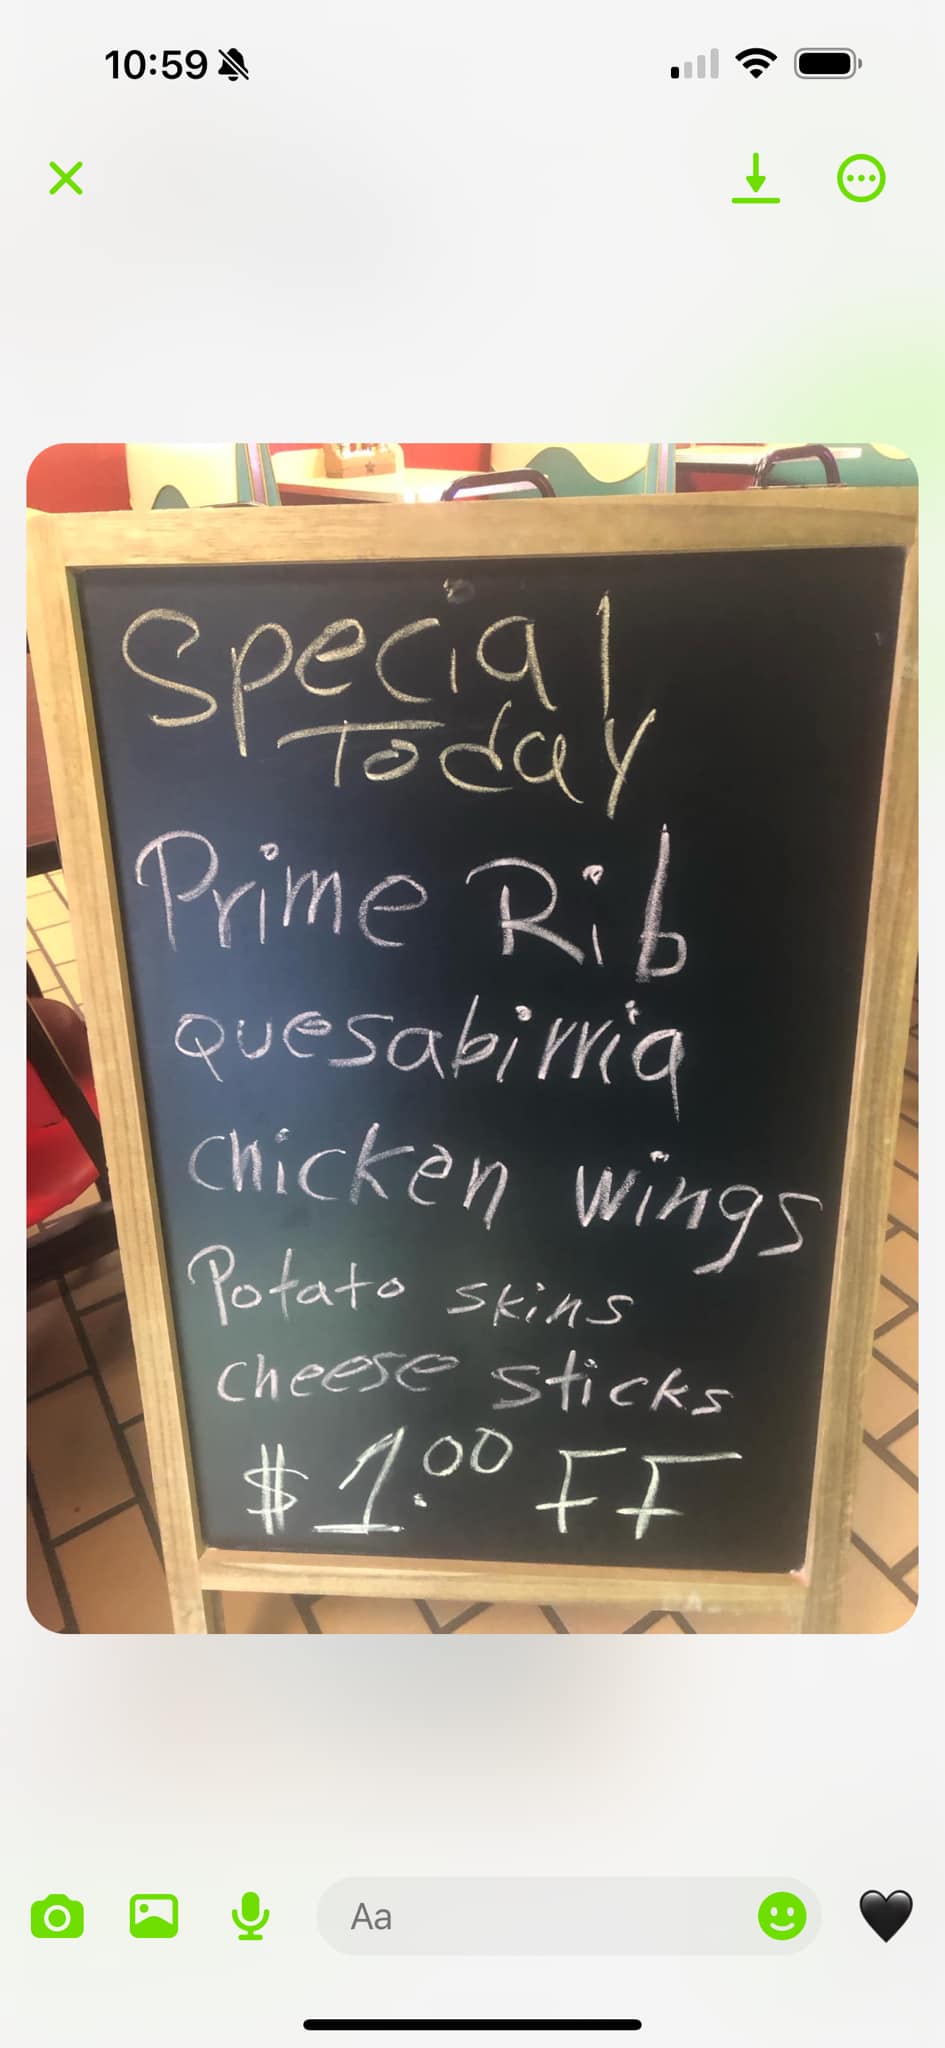 10:59
Special
Today
Prime Rib
Quesabirria
chicken wings
Potato skins
cheese sticks
$1.00 FF
Aa